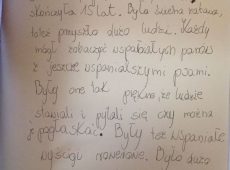 skończyła 15 lat. Była ładna
toteż przyszło dużo ludzi. Każdy
mógł zobaczyć wspaniałych panów
z jeszcze wspanialszymi psami.
Były one tak piękne, że ludzie
stawali i pytali się czy można
je pogłaskać. Były też wspaniałe
wyścigi rowerowe. Było dużo